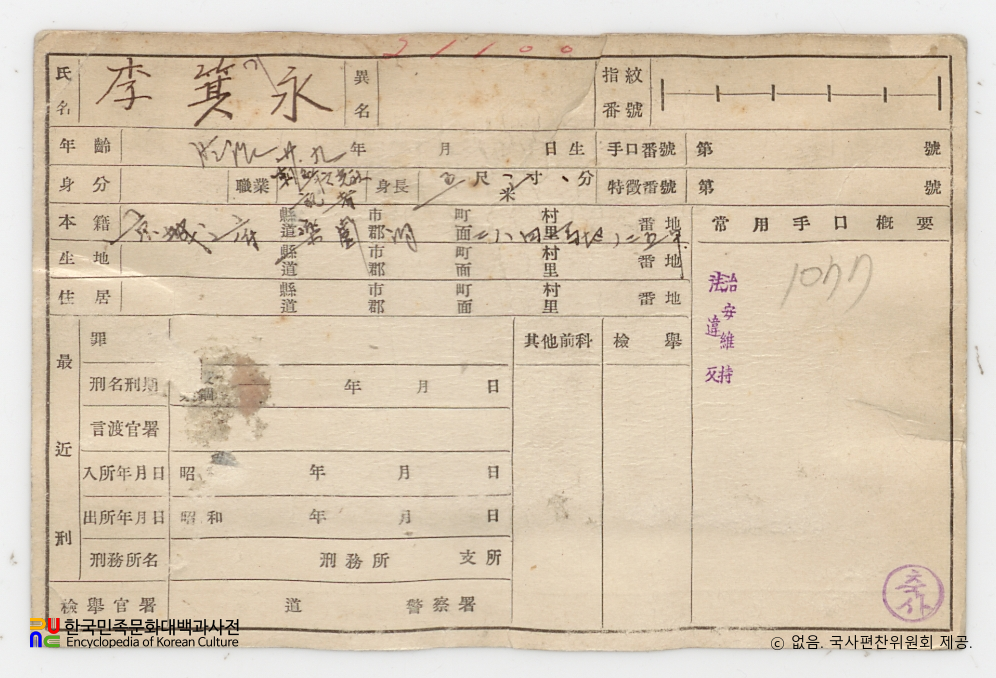 21100
氏名 李箕永 異名 指紋番號
年齡 年 月 日生 手口番號 第 號
身分 職業 身長 五尺 寸 分 米 特徵番號 第 號
本籍 京城府 縣道 市郡 町面 村里 番地
生地 縣道 市郡 町面 村里 番地
住居 縣道 市郡 町面 村里 番地
常用手口槪要
1077
治安維持
法違反
最近刑
罪
其他前科 檢擧
刑名刑期 年 月 日
言渡官署
入所年月日 昭 年 月 日
出所年月日 昭和 年 月 日
刑務所名 刑務所 支所
檢擧官署 道 警察署
축사
한국민족문화대백과사전
Encyclopedia of Korean Culture
ⓒ 없음. 국사편찬위원회 제공.